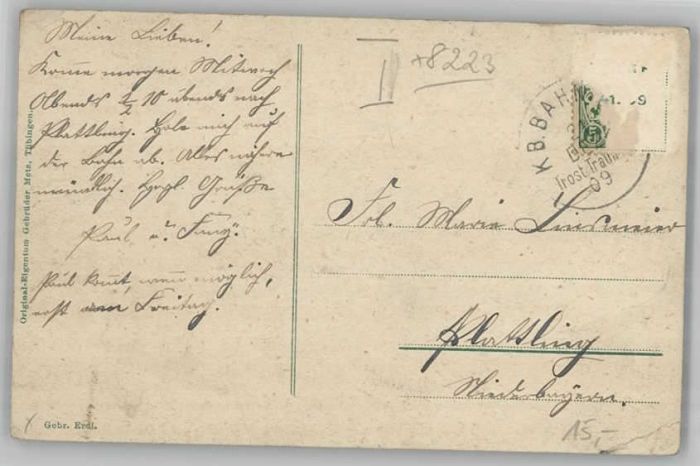 Meine Lieben!
Komme morgen Mittwoch
Abends ½ 10 abends nach
Plattling. Hole mich auf
der Bahn ab. Alles nähere
mündlich. Hrzl. Grüße
Paul u. Fanny.
Paul kommt, wenn möglich,
erst am Freitag.
Original-Eigentum Gebrüder Metz, Tübingen.
Gebr. Erdl.
I
+8223
K.B.BAHN
5
Trost.Traun
09
Frl. Marie Linsmeier
Plattling
Niederbayern.
15,-